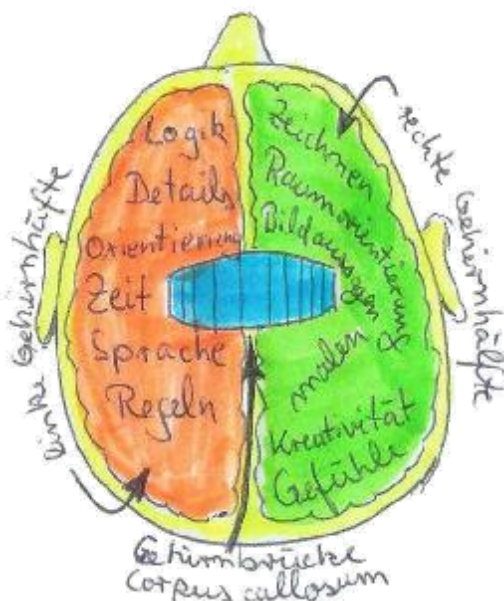 linke Gehirnhäfte
Logik
Details
Orientierung
Zeit
Sprache
Regeln
rechte Gehirnhälfte
Zeichnen
Raumorientierung
Bildaussagen
malen
Kreativität
Gefühle
Gehirnbrücke
Corpus callosum